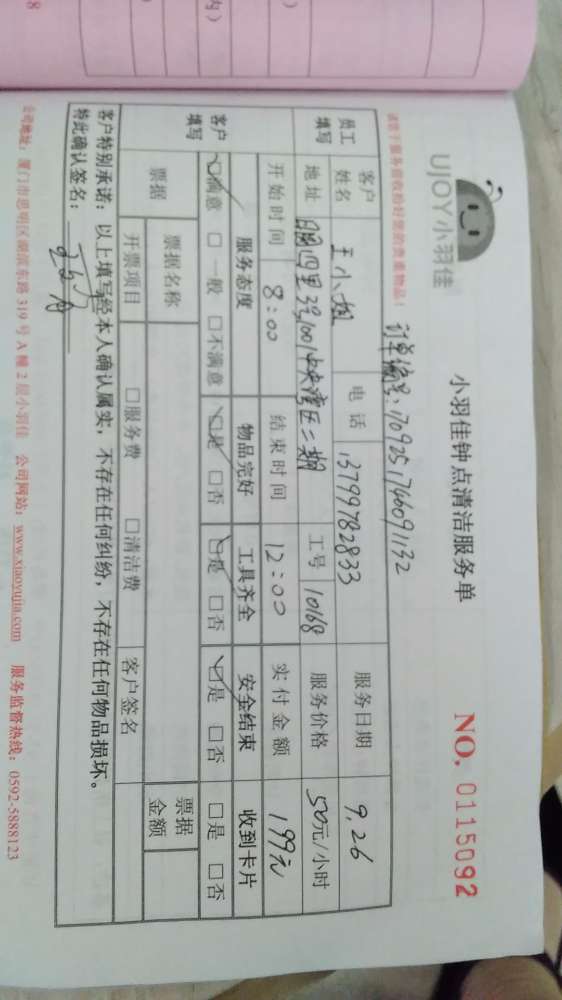 UJOY小羽佳
小羽佳钟点清洁服务单
NO. 0115092
请您于服务前收拾好您的贵重物品！
订单编号：1709251746091132
员工填写
客户姓名 王小姐 电话 13799782833 服务日期 9.26
地址 四里39,1001中央湾区二期 工号 10168 服务价格 50元/小时
开始时间 8:00 结束时间 12:00 实付金额 199元
客户填写
服务态度 物品完好 工具齐全 安全结束 收到卡片
☑满意 □一般 □不满意 ☑是 □否 ☑是 □否 ☑是 □否 □是 □否
票据 票据名称 票据金额
开票项目 □服务费 □清洁费 客户签名
客户特别承诺：以上填写经本人确认属实，不存在任何纠纷，不存在任何物品损坏。
特此确认签名：
公司地址：厦门市思明区湖滨东路 319 号 A 幢 2 层小羽佳 公司网站：www.xiaoyujia.com 服务监督热线：0592-5888123